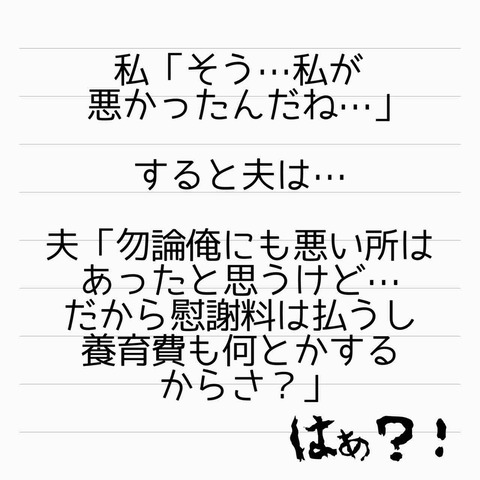 私「そう…私が
悪かったんだね…」
すると夫は…
夫「勿論俺にも悪い所は
あったと思うけど…
だから慰謝料は払うし
養育費も何とかする
からさ？」
はぁ？！